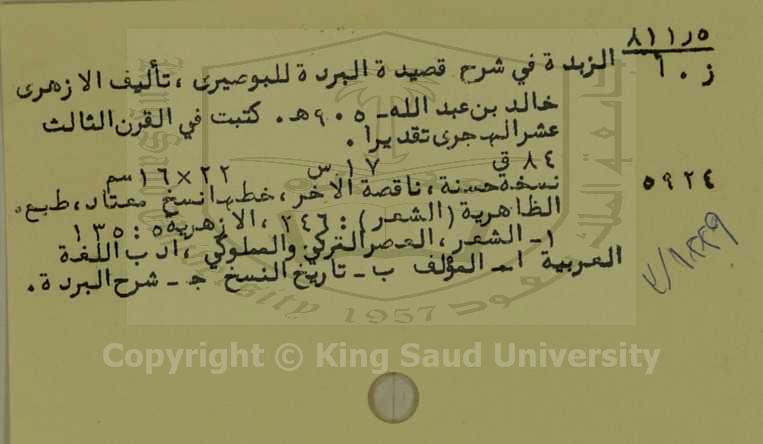 ٨١١٫٥
ز ٠ أ
الزبدة في شرح قصيدة البردة للبوصيرى ، تأليف الازهرى
خالد بن عبد الله ـ ٩٠٥هـ. كتبت في القرن الثالث
عشر الهجرى تقديرا .
٨٤ ق ١٧ س ٢٢×١٦ سم
٥٩٢٤
نسخة حسنة ، ناقصة الآخر ، خطها نسخ معتاد ، طبع.
الظاهرية (الشعر) : ٢٤٦ ، الازهرية ٥ : ١٣٥
١- الشعر ، العصر التركي والمملوكي ، ادب اللغة
العربية أ ـ المؤلف ب ـ تاريخ النسخ جـ ـ شرح البردة .
1957
Copyright © King Saud University